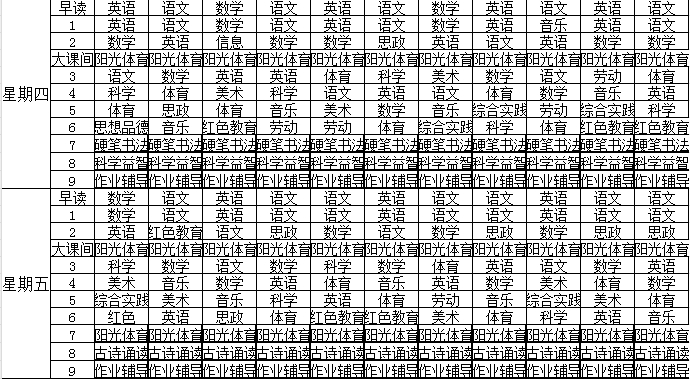 早读 英语 语文 数学 语文 英语 语文 数学 语文 英语 英语 语文
1 英语 语文 数学 语文 英语 语文 数学 英语 音乐 英语 语文
2 数学 英语 信息 数学 数学 思政 英语 语文 英语 数学 数学
大课间 阳光体育 阳光体育 阳光体育 阳光体育 阳光体育 阳光体育 阳光体育 阳光体育 阳光体育 阳光体育 阳光体育
3 语文 数学 英语 英语 体育 科学 美术 数学 语文 劳动 体育
星期四
4 科学 体育 美术 科学 语文 英语 语文 体育 数学 音乐 英语
5 体育 思政 体育 音乐 美术 数学 音乐 综合实践 劳动 综合实践 科学
6 思想品德 音乐 红色教育 劳动 劳动 体育 综合实践 科学 体育 红色教育 红色教育
7 硬笔书法 硬笔书法 硬笔书法 硬笔书法 硬笔书法 硬笔书法 硬笔书法 硬笔书法 硬笔书法 硬笔书法 硬笔书法
8 科学益智 科学益智 科学益智 科学益智 科学益智 科学益智 科学益智 科学益智 科学益智 科学益智 科学益智
9 作业辅导 作业辅导 作业辅导 作业辅导 作业辅导 作业辅导 作业辅导 作业辅导 作业辅导 作业辅导 作业辅导
早读 数学 语文 英语 语文 语文 英语 语文 语文 英语 语文 语文
1 数学 语文 英语 语文 语文 英语 语文 语文 数学 语文 语文
2 英语 红色教育 语文 思政 数学 语文 数学 思政 数学 思政 思政
大课间 阳光体育 阳光体育 阳光体育 阳光体育 阳光体育 阳光体育 阳光体育 阳光体育 阳光体育 阳光体育 阳光体育
3 科学 数学 语文 数学 科学 数学 体育 英语 语文 数学 英语
星期五
4 美术 音乐 数学 英语 体育 音乐 英语 数学 美术 体育 数学
5 综合实践 美术 音乐 科学 英语 体育 劳动 音乐 综合实践 美术 体育
6 红色 英语 思政 体育 红色教育 红色教育 美术 体育 科学 英语 音乐
7 阳光体育 阳光体育 阳光体育 阳光体育 阳光体育 阳光体育 阳光体育 阳光体育 阳光体育 阳光体育 阳光体育
8 古诗诵读 古诗诵读 古诗诵读 古诗诵读 古诗诵读 古诗诵读 古诗诵读 古诗诵读 古诗诵读 古诗诵读 古诗诵读
9 作业辅导 作业辅导 作业辅导 作业辅导 作业辅导 作业辅导 作业辅导 作业辅导 作业辅导 作业辅导 作业辅导